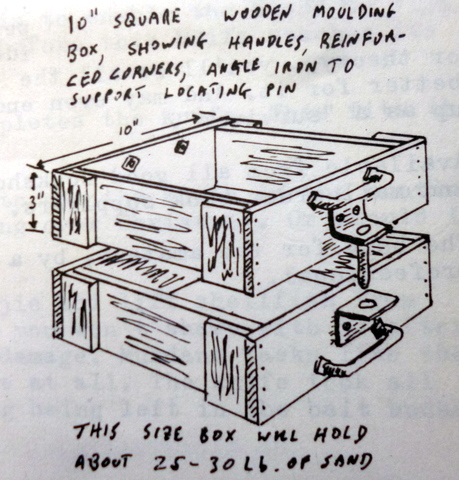 10" SQUARE WOODEN MOULDING
BOX, SHOWING HANDLES, REINFOR-
CED CORNERS, ANGLE IRON TO
SUPPORT LOCATING PIN
10"
3"
THIS SIZE BOX WILL HOLD
ABOUT 25-30 LB. OF SAND